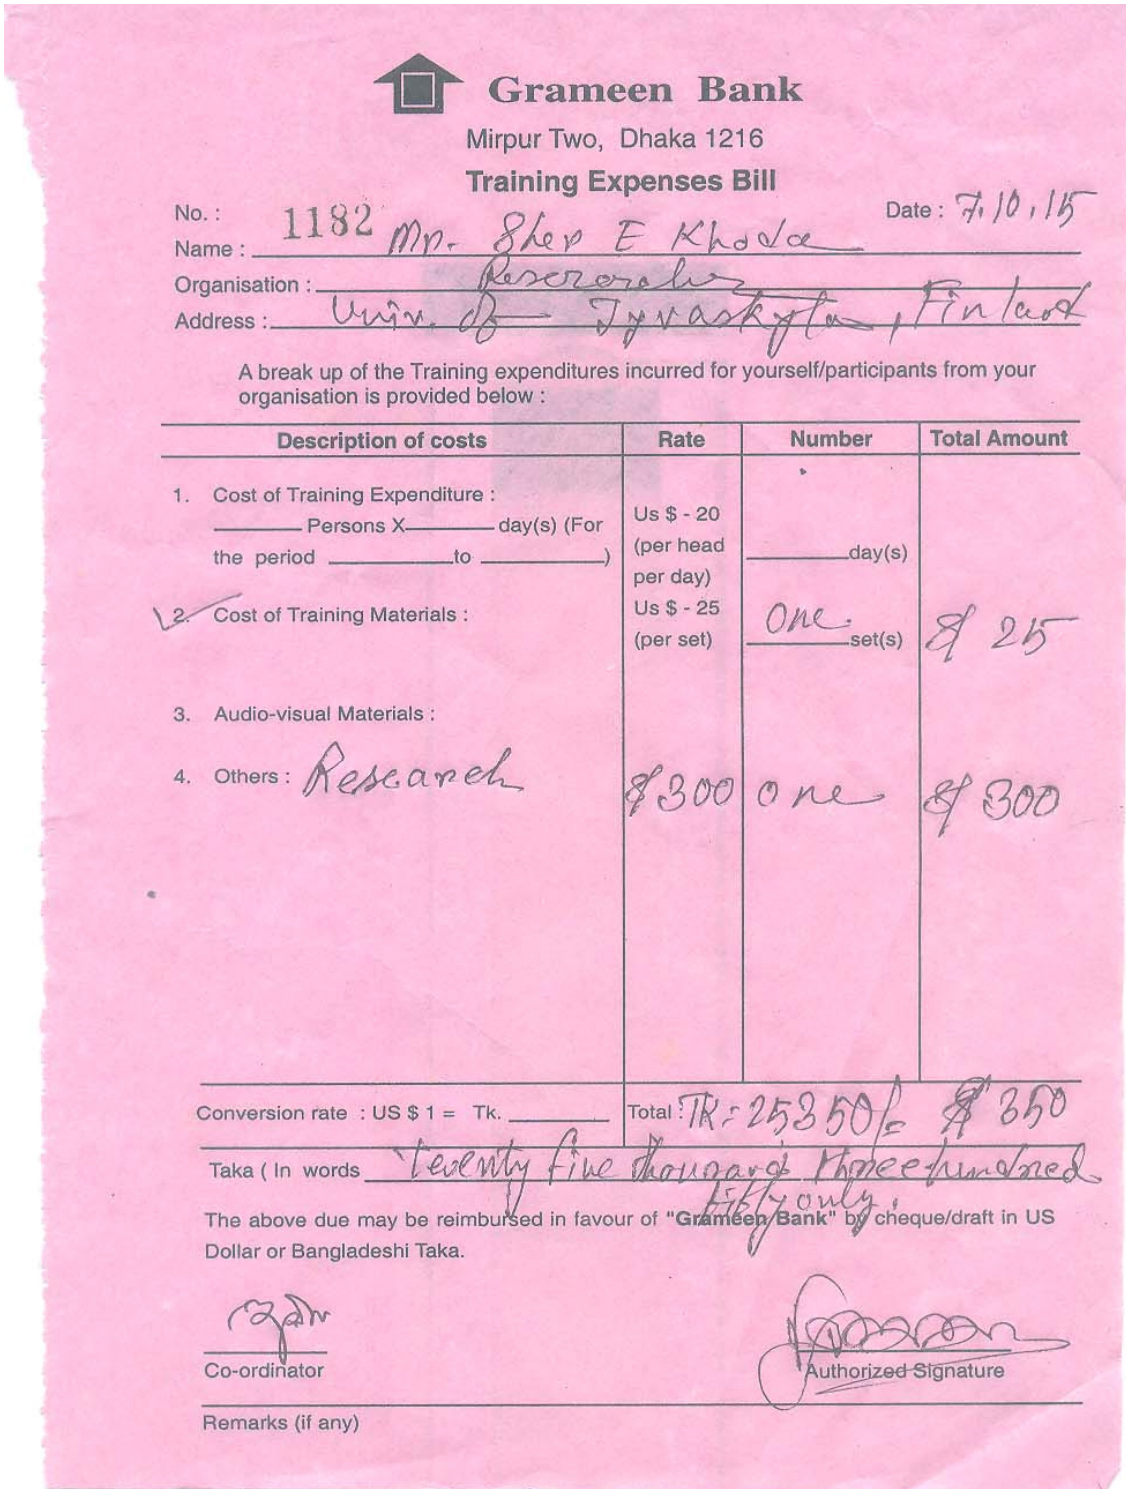 Grameen Bank
Mirpur Two, Dhaka 1216
Training Expenses Bill
No. : 1182
Date : 7.10.15
Name : Mr. Sher E Khoda
Organisation : Researcher
Address : Univ. of Jyvaskyla, Finland
A break up of the Training expenditures incurred for yourself/participants from your
organisation is provided below :
Description of costs Rate Number Total Amount
1. Cost of Training Expenditure :
____ Persons X____ day(s) (For
the period ____to ____)
Us $ - 20
(per head
per day)
____day(s)
2. Cost of Training Materials :
Us $ - 25
(per set)
One
____set(s)
$ 25
3. Audio-visual Materials :
4. Others : Research $300 One $ 300
Conversion rate : US $ 1 = Tk. ____ Total : TK = 25350/= $ 350
Taka ( In words twenty five thousand three hundred
fifty only.
The above due may be reimbursed in favour of "Grameen Bank" by cheque/draft in US
Dollar or Bangladeshi Taka.
Co-ordinator
Authorized Signature
Remarks (if any)